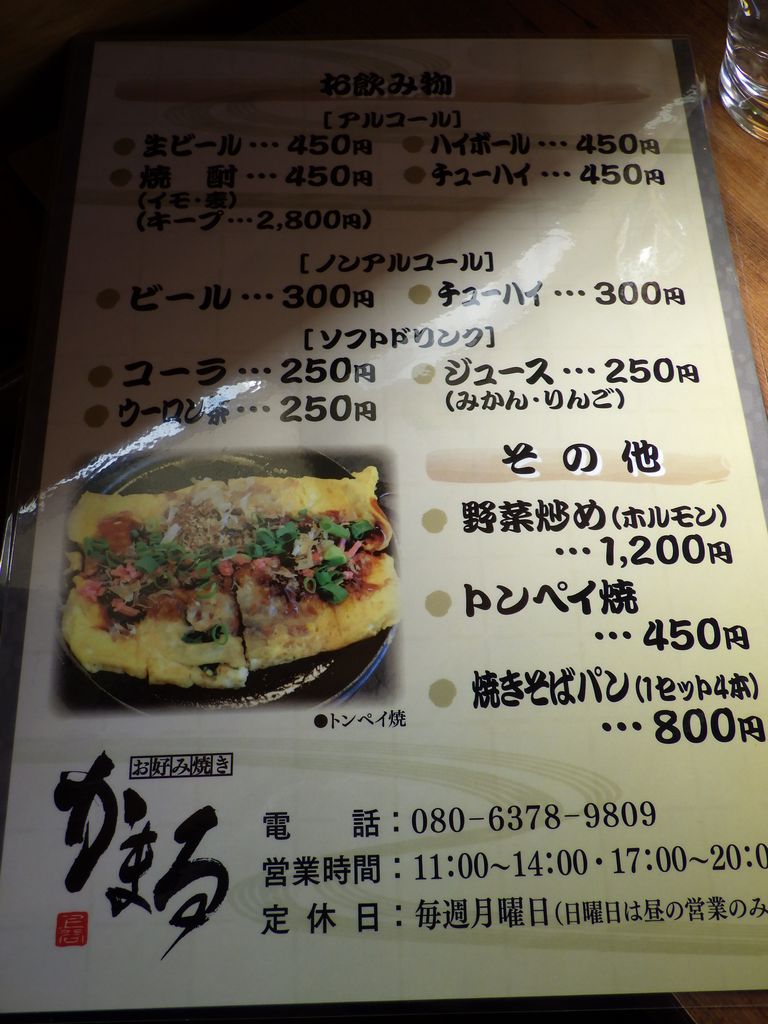 お飲み物
[アルコール]
生ビール…450円 ハイボール…450円
焼 酎…450円 チューハイ…450円
(イモ・麦)
(キープ…2,800円)
[ノンアルコール]
ビール…300円 チューハイ…300円
[ソフトドリンク]
コーラ…250円 ジュース…250円
(みかん・りんご)
ウーロン茶…250円
その他
野菜炒め(ホルモン)
…1,200円
トンペイ焼
…450円
焼きそばパン(1セット4本)
…800円
●トンペイ焼
お好み焼き
かまる
電 話:080-6378-9809
営業時間:11:00~14:00・17:00~20:0
定 休 日:毎週月曜日(日曜日は昼の営業のみ